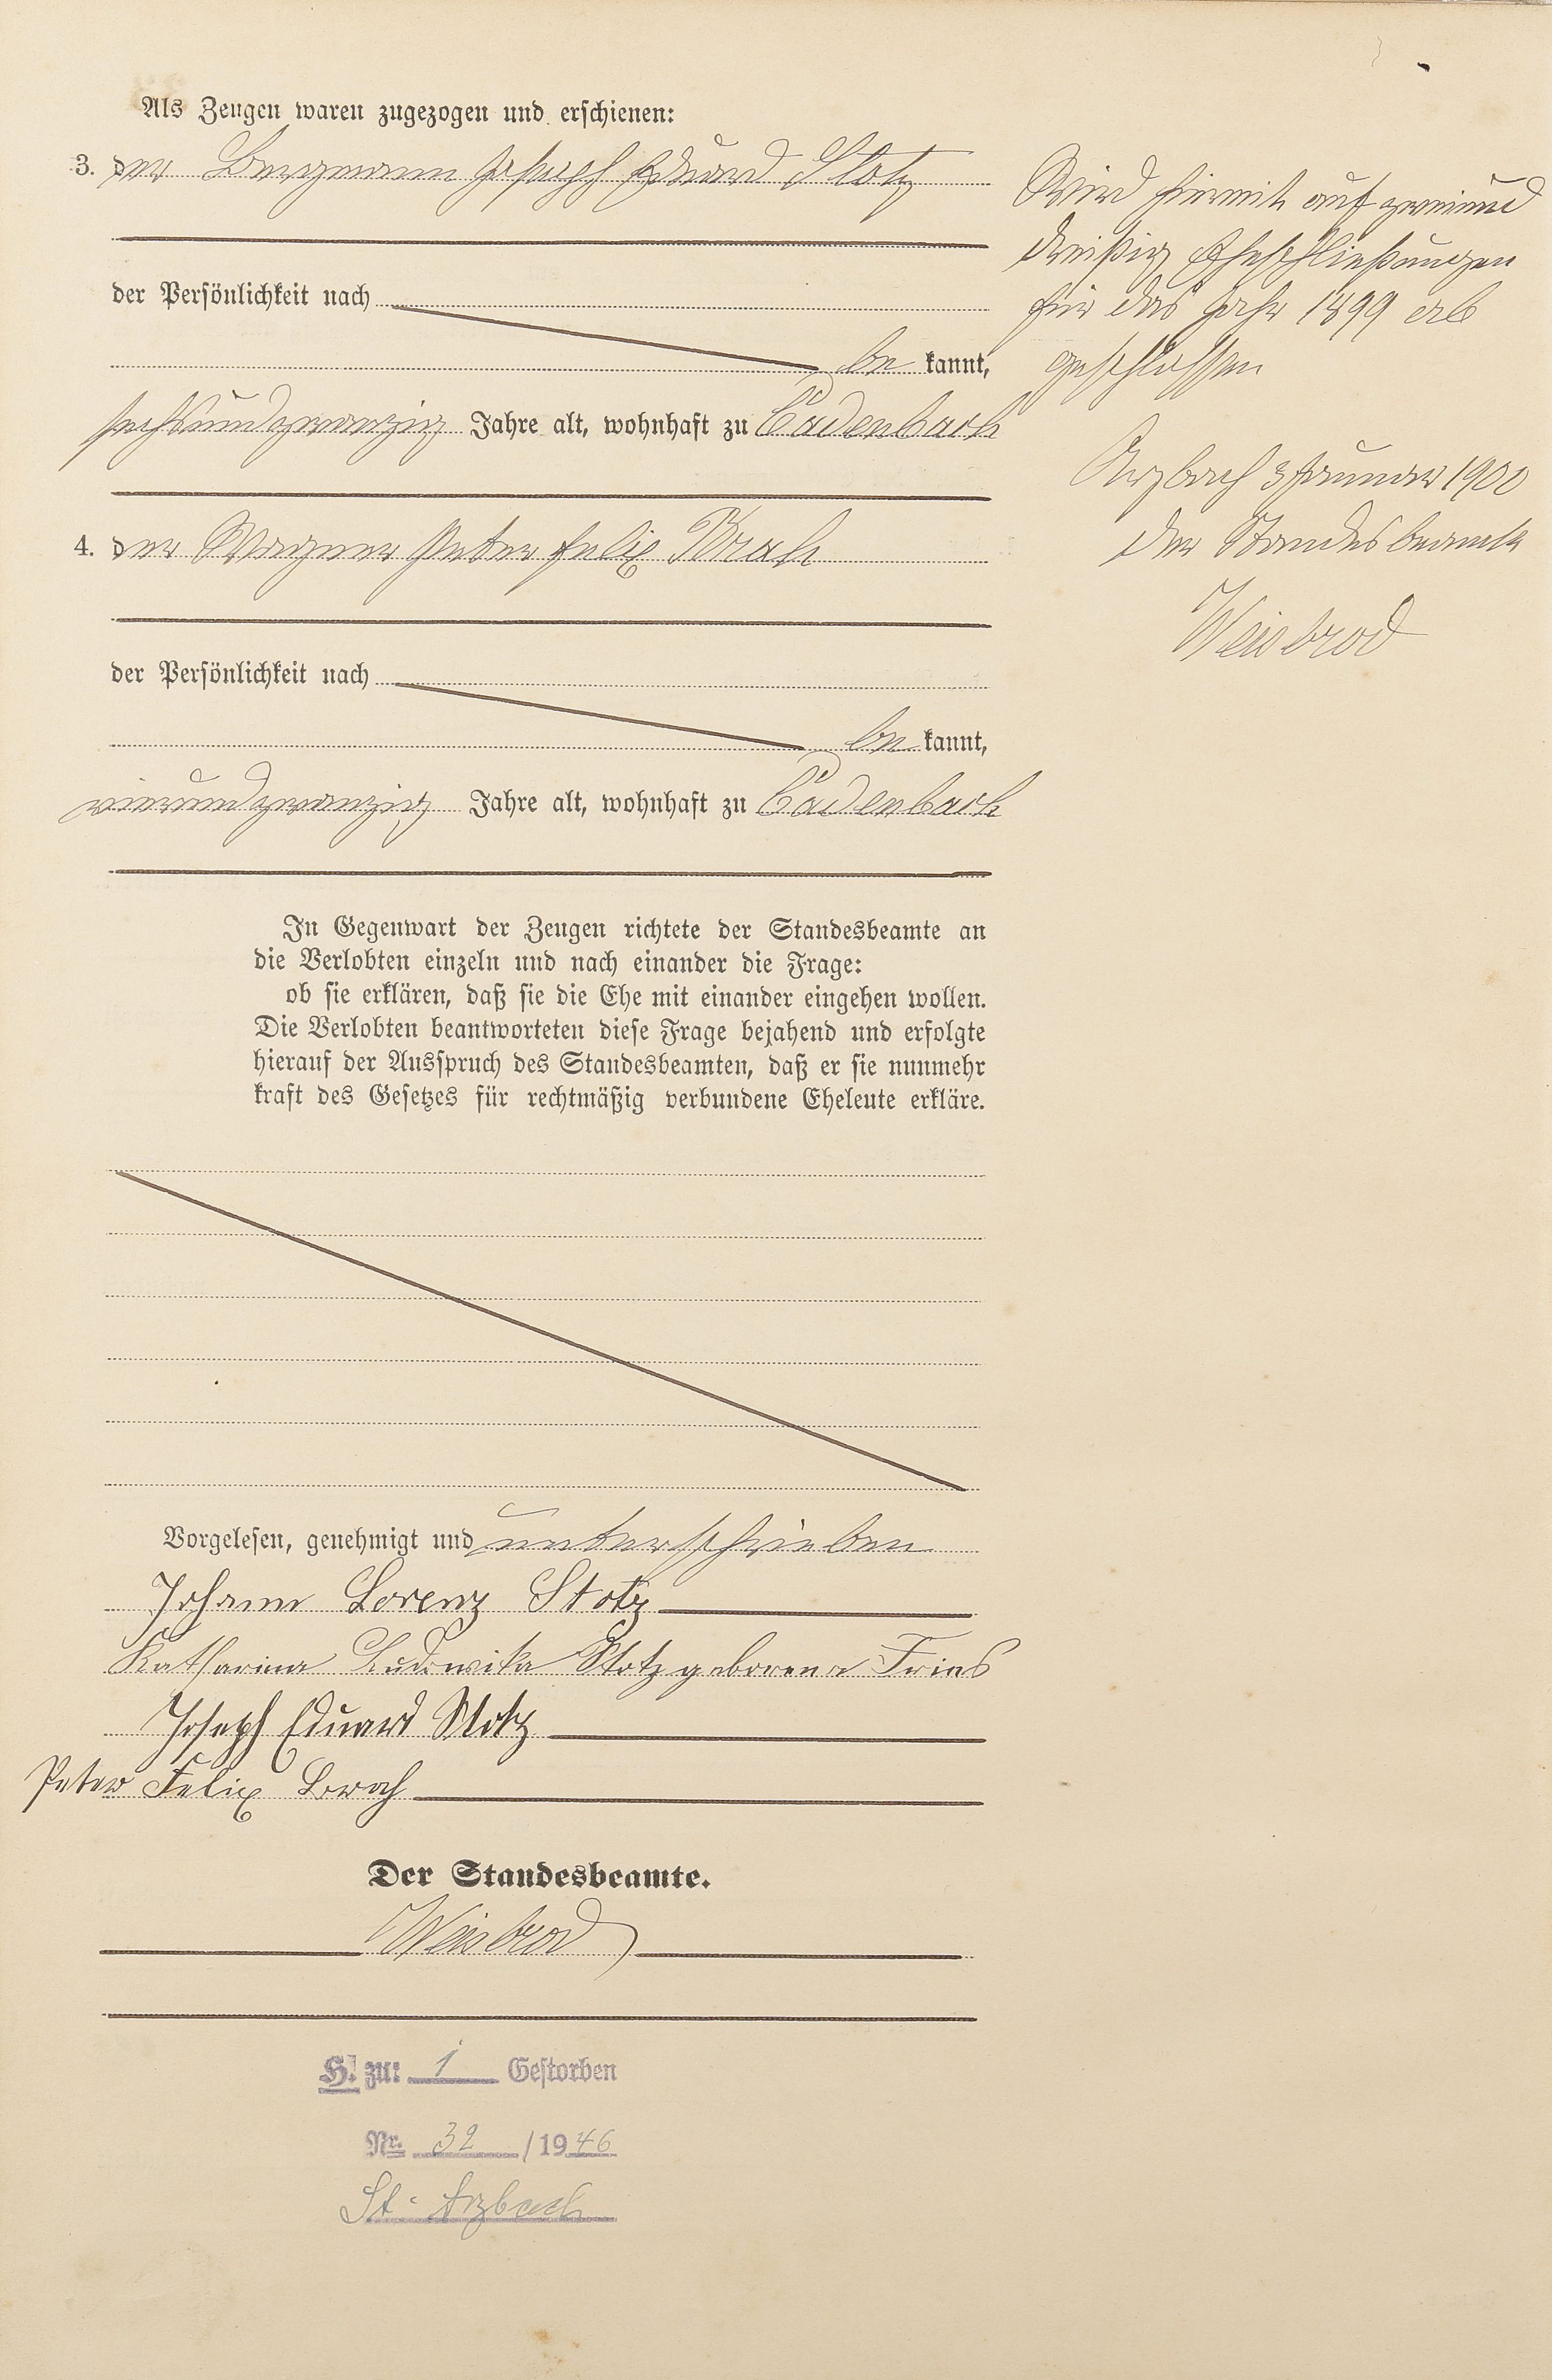 Als Zeugen waren zugezogen und erschienen:
3. der Bergmann Joseph Eduard Stotz
der Persönlichkeit nach
be kannt,
sechsundzwanzig Jahre alt, wohnhaft zu Cadenbach
4. der Wagner Peter Felix Brach
der Persönlichkeit nach
be kannt,
vierundzwanzig Jahre alt, wohnhaft zu Cadenbach
In Gegenwart der Zeugen richtete der Standesbeamte an
die Verlobten einzeln und nach einander die Frage:
ob sie erklären, daß sie die Ehe mit einander eingehen wollen.
Die Verlobten beantworteten diese Frage bejahend und erfolgte
hierauf der Ausspruch des Standesbeamten, daß er sie nunmehr
kraft des Gesetzes für rechtmäßig verbundene Eheleute erkläre.
Vorgelesen, genehmigt und unterschrieben
Johann Lorenz Stotz
Katharina Ludowika Stotz geborene Fries
Joseph Eduard Stotz
Peter Felix Brach
Der Standesbeamte.
Weisbrod
H. zu: 1 Gestorben
Nr. 32 / 1946
St. Arzbach
Wird hiermit auf zweiund
dreißig Eheschließungen
für das Jahr 1899 ab
geschlossen
Arzbach 3 Januar 1900
Der Standesbeamte
Weisbrod